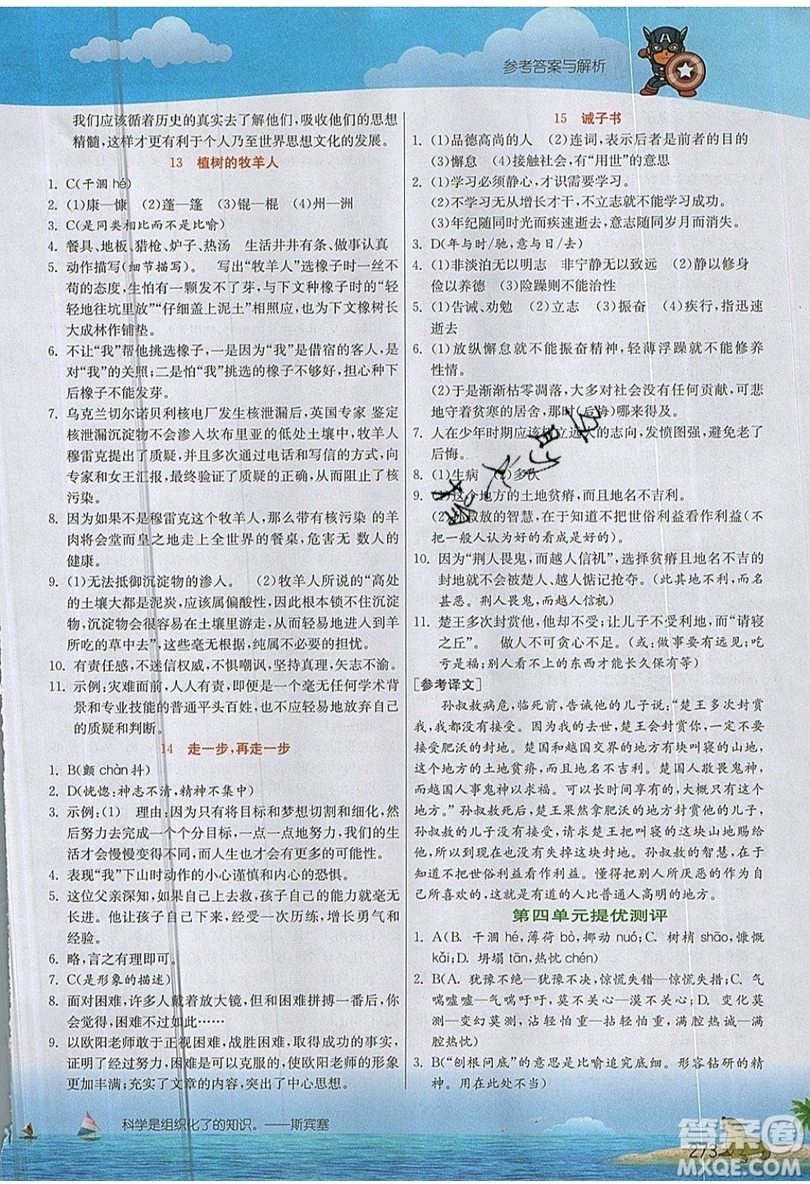 参考答案与解析
我们应该循着历史的真实去了解他们,吸收他们的思想
精髓,这样才更有利于个人乃至世界思想文化的发展。
13 植树的牧羊人
1. C(干涸 hé)
2. (1)康—慷 (2)蓬—篷 (3)锟—棍 (4)州—洲
3. C(是同类相比而不是比喻)
4. 餐具、地板、猎枪、炉子、热汤 生活井井有条、做事认真
5. 动作描写(细节描写)。 写出“牧羊人”选橡子时一丝不
苟的态度,生怕有一个发霉不能发芽,与下文种橡子时的“轻
轻地往坑里放”“仔细盖上泥土”相呼应,也与下文橡树长
大成林作铺垫。
6. 不让“我”帮他挑选橡子,一是因为“我”是借宿的客人,是
对“我”的关照;二是怕“我”挑选的橡子不够饱满,种下
后橡子不能发芽。
7. 乌克兰切尔诺贝利核电厂发生核泄漏后,英国专家 鉴定
核泄漏沉淀物不会渗入坎布里亚的低处土壤中,牧羊人
穆雷克提出了质疑,并且多次通过电话和写信的方式,向
专家和女王汇报,最终验证了质疑的正确,防止了核
污染。
8. 如果没有像穆雷克这个牧羊人,那么带有核污染 的羊
肉将会堂而皇之地走上全世界的餐桌,危害无 数人的
健康。
9. (1)无法抵御沉淀物的渗入。 (2)牧羊人所说的“高处
的土壤大都是泥炭,应该属偏酸性,因此根本锁不住沉淀
物,这样沉淀物就会随着雨水在土壤里游走,并渗入到羊
所吃的草中去”,这些毫无根据,纯属不必要的担忧。
10. 有责任感,不迷信权威,不惧嘲讽,坚持真理,矢志不渝。
11. 示例:灾难面前,人人有责,即便是一个毫无任何学术背
景和专业技能的普通平头百姓,也不应轻易地放弃自己
的质疑和判断。
14 走一步,再走一步
1. B(颤 chàn 抖)
2. D(恍惚:神志不清,精神不集中)
3. 示例:(1) 理由:因为只有将目标和梦想切割和细化,然
后努力去完成一个个分目标,一点一点地努力,我们的生
活才会慢慢变得不同,而人生也才会越来越精彩。
4. 表现“我”下山时动作的小心谨慎和内心的恐惧。
5. 这位父亲深知,如果自己上去救,孩子自己就毫无
长进。他让孩子自己努力下来,是为了让他获得勇气和
经验。
6. 略,言之有理即可。
7. C(是形象的描述)
8. 面对困难,许多人戴着放大镜,但和困难拼搏一番,你
会发现,困难不过如此……
9. 以欧阳老师敢于正视困难,战胜困难,取得成功的事实,
证明了经过努力,困难是可以克服的,使欧阳老师的形象
更加丰满;充实了文章的内容,突出了中心思想。
15 诫子书
1. (1)品德高尚的人 (2)连词,表示后者是前者的目的
(3)懈怠 (4)接触社会,有“用世”的意思
2. (1)学习必须静心,才识需要学习。
(2)不学习无从增长才干,不立志就不能学习成功。
(3)年纪随同时光而疾速逝去,意志随同岁月而消失。
3. D(年与时/驰,意与日/去)
4. (1)非淡泊无以明志 非宁静无以致远 (2)静以修身
俭以养德 (3)险躁则不能治性
5. (1)告诫、劝勉 (2)立志 (3)振奋 (4)疾行,指迅速
逝去
6. (1)放纵懈怠就不能振奋精神,轻薄浮躁就不能修养
性情。
(2)于是渐渐枯零凋落,大多对社会没有任何贡献,可悲
地守着贫寒的居舍,那时(后悔)哪里来得及。
7. 人在少年时期应该树立远大的志向,发愤图强,避免老了
后悔。
8. (1)生病 (2)多次
9. (1)这个地方的土地贫瘠,而且地名不吉利。
(2)孙叔敖的智慧,在于知道不把世俗利益看作利益。
(不把一般人认为好的看成是好的)。
10. 因为“荆人畏鬼,而越人信禨”,选择贫瘠而地名不吉的
封地就不会被楚人、越人惦记抢夺。(此其地不利,而名
甚恶。荆人畏鬼,而越人信机)
11. 楚王多次封赏他,他都不接受;让儿子不受利地,而“请寝
之丘”。 做人不可贪求不足。(或:做事要有远见;吃
亏是福;别人看不上的东西才能长久保存等)
[参考译文]
孙叔敖病危,临死前,告诫他的儿子说:“楚王多次封赏
我,我都没有接受。我如果去世,楚王会封赏你,你一定不
要接受肥沃的封地。楚国和越国交界的地方有一块土地,
这个地方土地贫瘠,而且地名不吉利。楚人敬畏鬼神,而越
人迷信鬼神和灾祥。可以长时间享有的封地,大概只有这
个地方。”孙叔敖死后,楚王果然拿肥沃的地方封他的儿子,孙
叔敖的儿子没有接受,请求楚王把那块贫瘠的山地赐给
他,所以到现在也没有失掉这块土地。孙叔敖的智慧,在于
知道不把世俗利益看作利益。懂得把别人所厌恶的东西当
作自己所喜欢的,这就是有道之人比普通人高明的地方。
第四单元提优测评
1. A(B. 干涸 hé,薄荷 bò,挪动 nuó;C. 树梢 shāo,慷慨
kǎi;D. 坍塌 tān,热忱 chén)
2. B(A. 犹豫不绝—犹豫不决,惊慌失错—惊慌失措;C. 气
喘嘘嘘—气喘吁吁,莫不关心—漠不关心;D. 变化莫
测—变幻莫测,沾轻怕重—拈轻怕重,满腔热忧—满
腔热忱)
3. B(“刨根问底”的意思是比喻追究底细。形容钻研的精
神。用在此处不合语境)
科学是组织化了的知识。——斯宾塞
273
答案圈
MXQE.COM